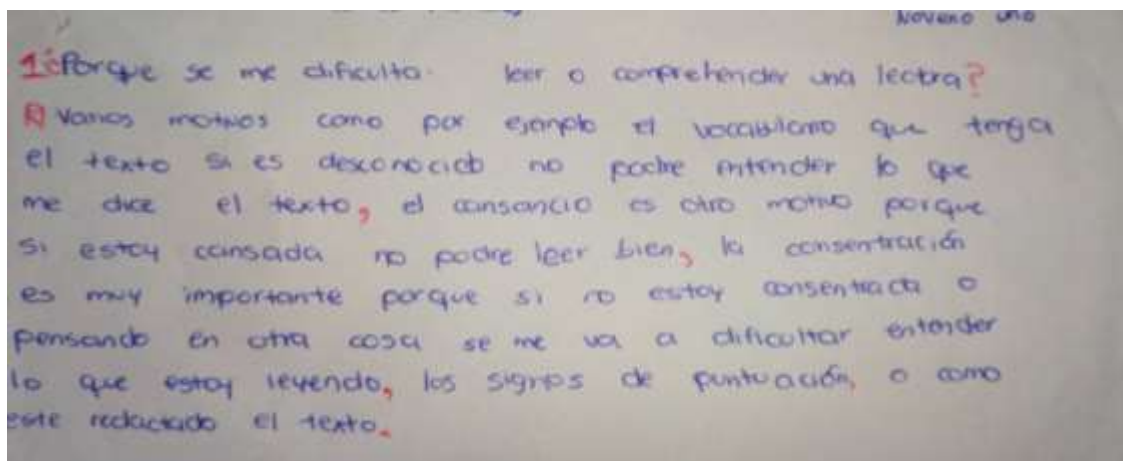 Noveno uno
1 ¿Porque se me dificulta leer o comprehender una lectora?
R) Varios motivos como por ejemplo el que tenga
el texto si es desconocido no podre entender lo que
me dice el texto, el cansancio es otro motivo porque
si estoy cansada no podre leer bien, la consentración
es muy importante porque si no estoy consentrada o
pensando en otra cosa se me va a dificultar entender
lo que estoy leyendo, los signos de puntuación, o como
este redactado el texto.